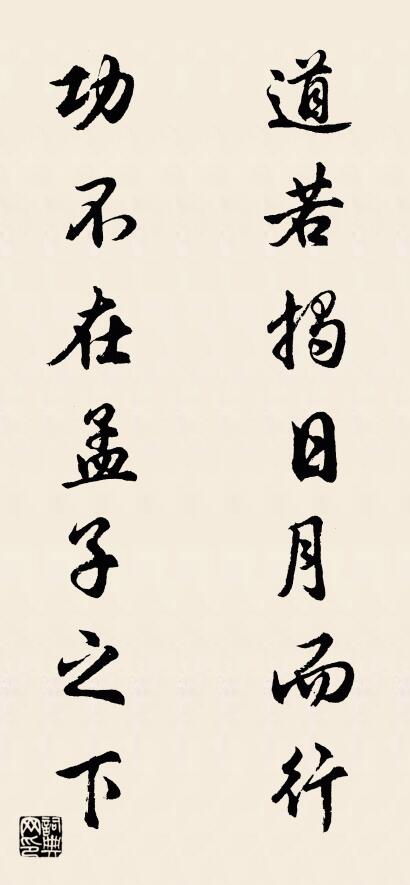 道若揭日月而行
功不在孟子之下
詞典网印